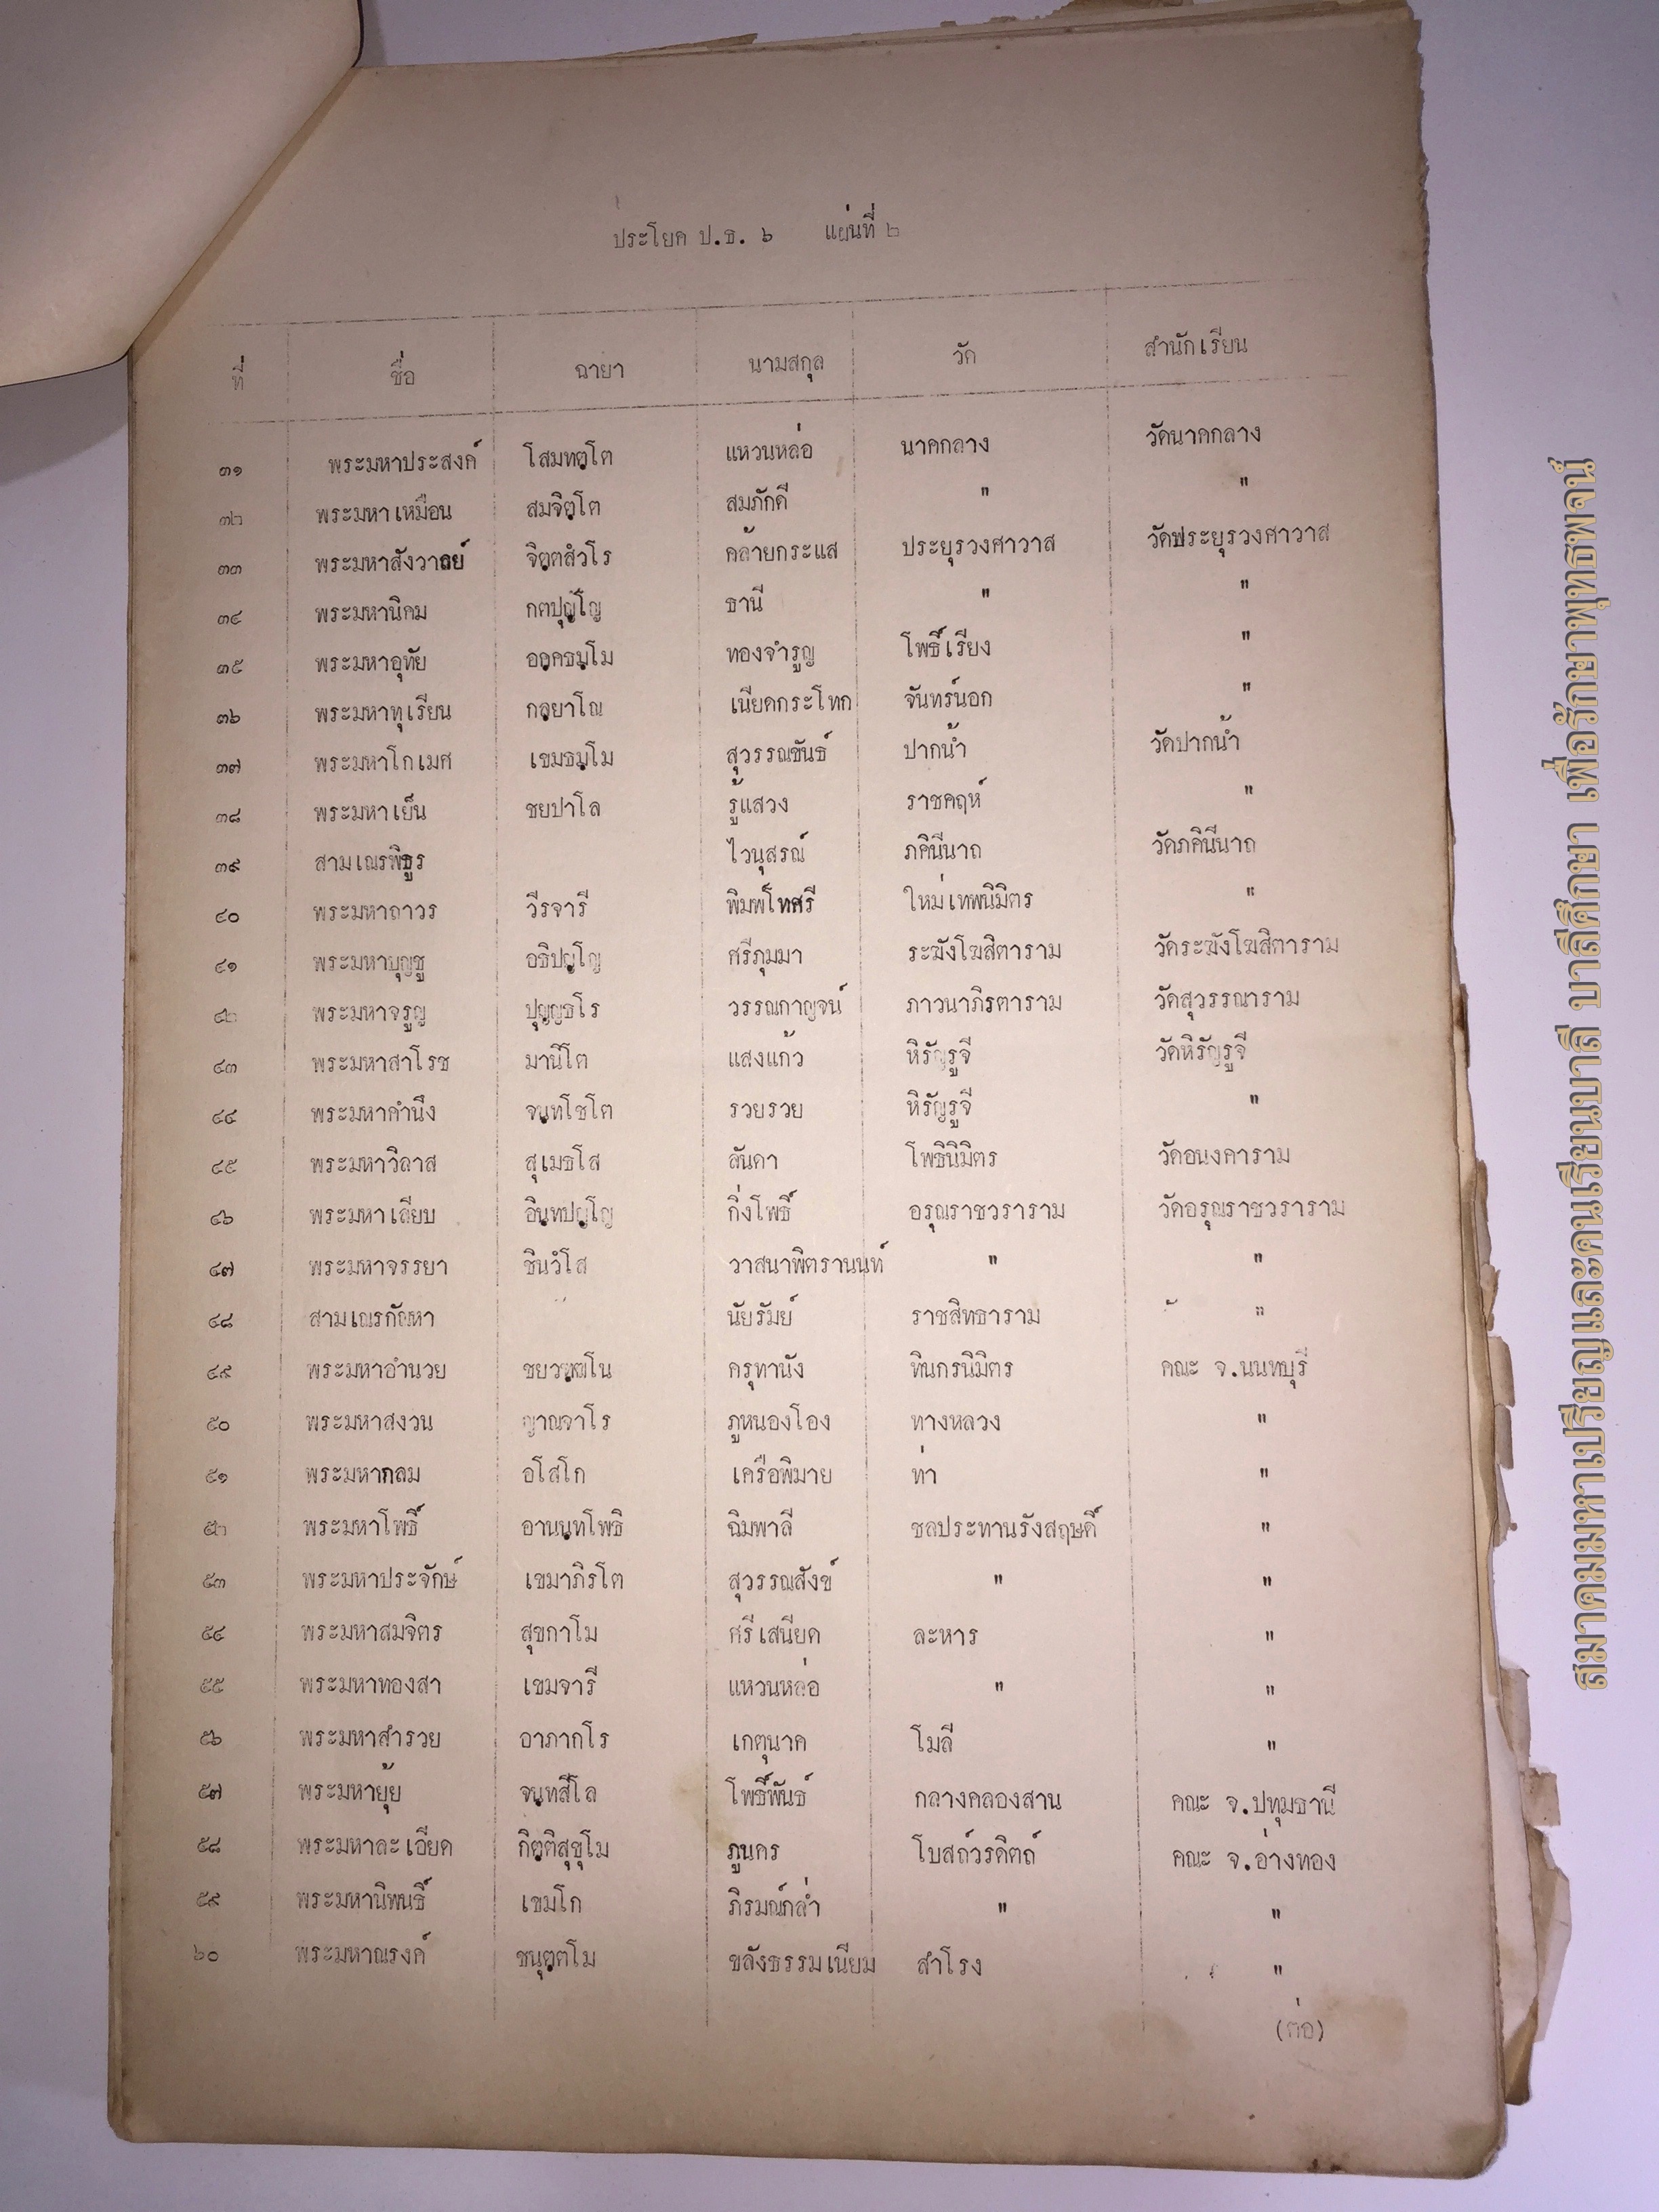 ประโยค ป.ธ. ๖ แผ่นที่ ๒
ที่ ชื่อ ฉายา นามสกุล วัด สำนักเรียน
๓๑ พระมหาประสงค์ โสมทตฺโต แหวนหล่อ นาคกลาง วัดนาคกลาง
๓๒ พระมหาเหมือน สมจิตฺโต สมภักดี " "
๓๓ พระมหาสังวาลย์ จิตฺตสํวโร คล้ายกระแส ประยุรวงศาวาส วัดประยุรวงศาวาส
๓๔ พระมหานิคม กตปุญฺโญ ธานี " "
๓๕ พระมหาอุทัย อคฺคธมฺโม ทองจำรูญ โพธิ์เรียง "
๓๖ พระมหาทุเรียน กลฺยาโณ เนียดกระโทก จันทร์นอก "
๓๗ พระมหาโกเมศ เขมธมฺโม สุวรรณขันธ์ ปากน้ำ วัดปากน้ำ
๓๘ พระมหาเย็น ชยปาโล รู้แสวง ราชคฤห์ "
๓๙ สามเณรพิธูร ไวนุสรณ์ ภคินีนาถ วัดภคินีนาถ
๔๐ พระมหาถาวร วีรจารี พิมพ์โทศรี ใหม่เทพนิมิตร "
๔๑ พระมหาบุญชู อธิปญฺโญ ศรีภุมมา ระฆังโฆสิตาราม วัดระฆังโฆสิตาราม
๔๒ พระมหาจรูญ ปุญฺญธโร วรรณกาญจน์ ภาวนาภิรตาราม วัดสุวรรณาราม
๔๓ พระมหาสาโรช มานิโต แสงแก้ว หิรัญรูจี วัดหิรัญรูจี
๔๔ พระมหาคำนึง จนฺทโชโต รวยรวย หิรัญรูจี "
๔๕ พระมหาวิลาส สุเมธโส ลันดา โพธินิมิตร วัดอนงคาราม
๔๖ พระมหาเลียบ อินฺทปญฺโญ กิ่งโพธิ์ อรุณราชวราราม วัดอรุณราชวราราม
๔๗ พระมหาจรรยา ชินวํโส วาสนาพิตรานนท์ " "
๔๘ สามเณรกัณหา นัยรัมย์ ราชสิทธาราม "
๔๙ พระมหาอำนวย ชยวฑฺฒโน ครุทานัง ทินกรนิมิตร คณะ จ.นนทบุรี
๕๐ พระมหาสงวน ญาณจาโร ภูหนองโอง ทางหลวง "
๕๑ พระมหากลม อโสโก เครือพิมาย ท่า "
๕๒ พระมหาโพธิ์ อานนฺทโพธิ ฉิมพาลี ชลประทานรังสฤษดิ์ "
๕๓ พระมหาประจักษ์ เขมาภิรโต สุวรรณสังข์ " "
๕๔ พระมหาสมจิตร สุขกาโม ศรีเสนียด ละหาร "
๕๕ พระมหาทองสา เขมจารี แหวนหล่อ " "
๕๖ พระมหาสำรวย อาภากโร เกตุนาค โมลี "
๕๗ พระมหายุ้ย จนฺทสีโล โพธิ์พันธ์ กลางคลองสาน คณะ จ.ปทุมธานี
๕๘ พระมหาละเอียด กิตฺติสุขุโม ภูนคร โบสถ์วรดิตถ์ คณะ จ.อ่างทอง
๕๙ พระมหานิพนธิ์ เขมโก ภิรมณ์กล่ำ " "
๖๐ พระมหาณรงค์ ชนุตฺตโม ขลังธรรมเนียม สำโรง "
(ต่อ)
สมาคมมหาเปรียญและคนเรียนบาลี บาลีศึกษา เพื่อรักษาพุทธพจน์